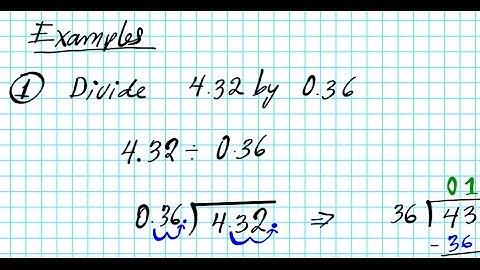 Examples
① Divide 4.32 by 0.36
4.32 ÷ 0.36
01
0.36.) 4.32. ⇒ 36 | 43
- 36